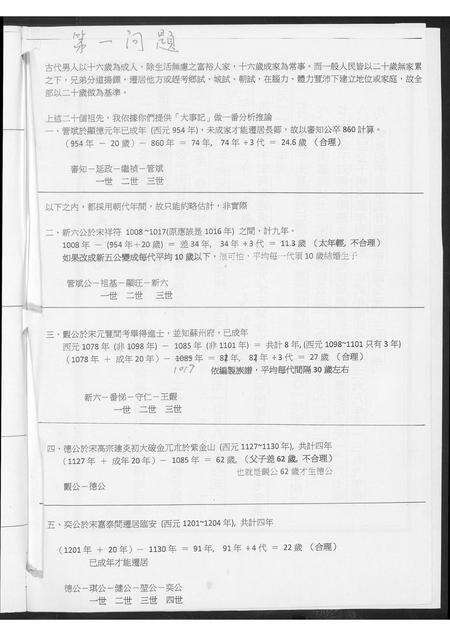 第一問題
古代男人以十六歲為成人，除生活無慮之富裕人家，十六歲成家為常事。而一般人民皆以二十歲無家累
之下，兄弟分道揚鑣，遷居他方或趕考鄉試、城試、朝試，在腦力、體力豐沛下建立地位或家庭，故全
部以二十歲做為基準。
上述二十個祖先，我依你們提供「大事記」做一番分析推論
一、管斌於顯德元年已成年 (西元 954 年)，未成家才能遷居長鄉，故以審知公卒 860 計算。
(954 年 － 20 歲) － 860 年 ＝ 74 年， 74 年 ÷3 代 ＝ 24.6 歲 (合理)
審知－延政－繼禎－管斌
一世 二世 三世
以下之內，都採用朝代年間，故只能約略估計，非實際
二、新六公於宋祥符 1008 ~1017(原應該是 1016 年) 之間，計九年，
1008 年 － (954 年＋20 歲) ＝ 差 34 年， 34 年 ÷3 代 ＝ 11.3 歲 (太年輕，不合理)
如果改成新五公變成每代平均 10 歲以下，很可怕，平均每一代須 10 歲結婚生子
管斌公－祖基－顯旺－新六
一世 二世 三世
三、觀公於宋元豐間考舉得進士，並知蘇州府，已成年
西元 1078 年 (非 1098 年) － 1085 年 (非 1101 年) ＝ 共計 8 年，(西元 1098~1101 只有 3 年)
(1078 年 ＋ 成年 20 年) － 1085 年 ＝ 81 年， 81 年 ÷3 代 ＝ 27 歲 (合理)
1017 依編製族譜，平均每代間隔 30 歲左右
新六－番悌－守仁－王觀
一世 二世 三世
四、德公於宋高宗建炎初大破金兀朮於紫金山 (西元 1127~1130 年)，共計四年
(1127 年 ＋ 成年 20 年) － 1085 年 ＝ 62 歲， (父子差 62 歲，不合理)
也就是觀公 62 歲才生德公
觀公－德公
五、奕公於宋嘉泰間遷居臨安 (西元 1201~1204 年)，共計四年
(1201 年 ＋ 20 年) － 1130 年 ＝ 91 年， 91 年 ÷4 代 ＝ 22 歲 (合理)
已成年才能遷居
德公－琪公－健公－堃公－奕公
一世 二世 三世 四世